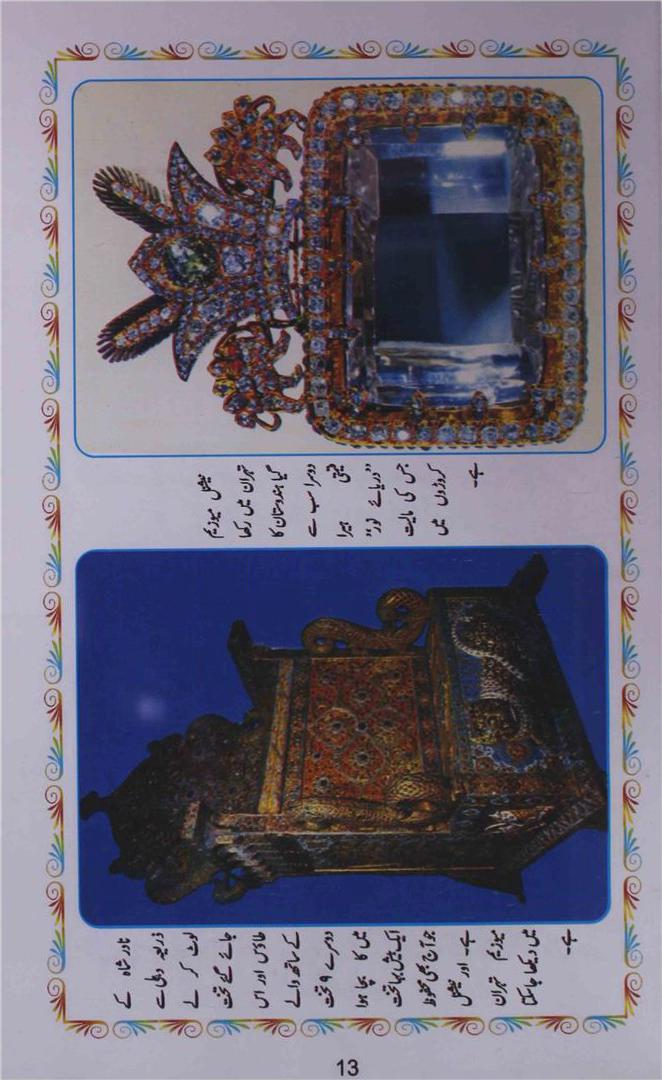 نیشنل میوزیم
تہران میں رکھا
گیا ہندوستان کا
دوسرا سب سے
قیمتی ہیرا
"دریائے نور"
جس کی مالیت
کروڑوں میں
ہے۔
نادر شاہ کے
ذریعہ دہلی سے
لوٹ کر لے
جائے گئے تخت
طاؤس اور اس
کے ساتھ والے
دوسرے ۹ تخت
میں کا بچا ہوا
ایک بیش بہا تخت
جو آج بھی محفوظ
ہے۔ اور نیشنل
میوزیم تہران
میں دیکھا جا سکتا
ہے۔
13